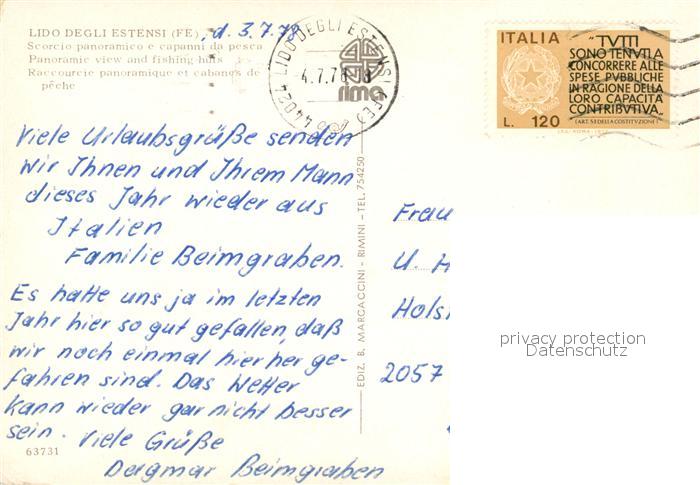 LIDO DEGLI ESTENSI (FE) , d. 3.7.78
Scorcio panoramico e capanni da pesca
Panoramic view and fishing-huts
Raccourcie panoramique et cabanes de
pêche
44024 LIDO DEGLI ESTENSI (FE)
4.7.78
rima
ITALIA
L. 120
"TVTTI
SONO TENVTI A
CONCORRERE ALLE
SPESE PVBBLICHE
IN RAGIONE DELLA
LORO CAPACITÀ
CONTRIBVTIVA"
(ART. 53 DELLA COSTITVZIONE)
Viele Urlaubsgrüße senden
wir Ihnen und Ihrem Mann
dieses Jahr wieder aus
Italien
Familie Beimgraben.
Es hatte uns ja im letzten
Jahr hier so gut gefallen, daß
wir noch einmal hier her ge-
fahren sind. Das Wetter
kann wieder gar nicht besser
sein. Viele Grüße
Dagmar Beimgraben
63731
EDIZ. B. MARGACCINI - RIMINI - TEL. 754250
Frau
U. H
Holst
2057
privacy protection
Datenschutz